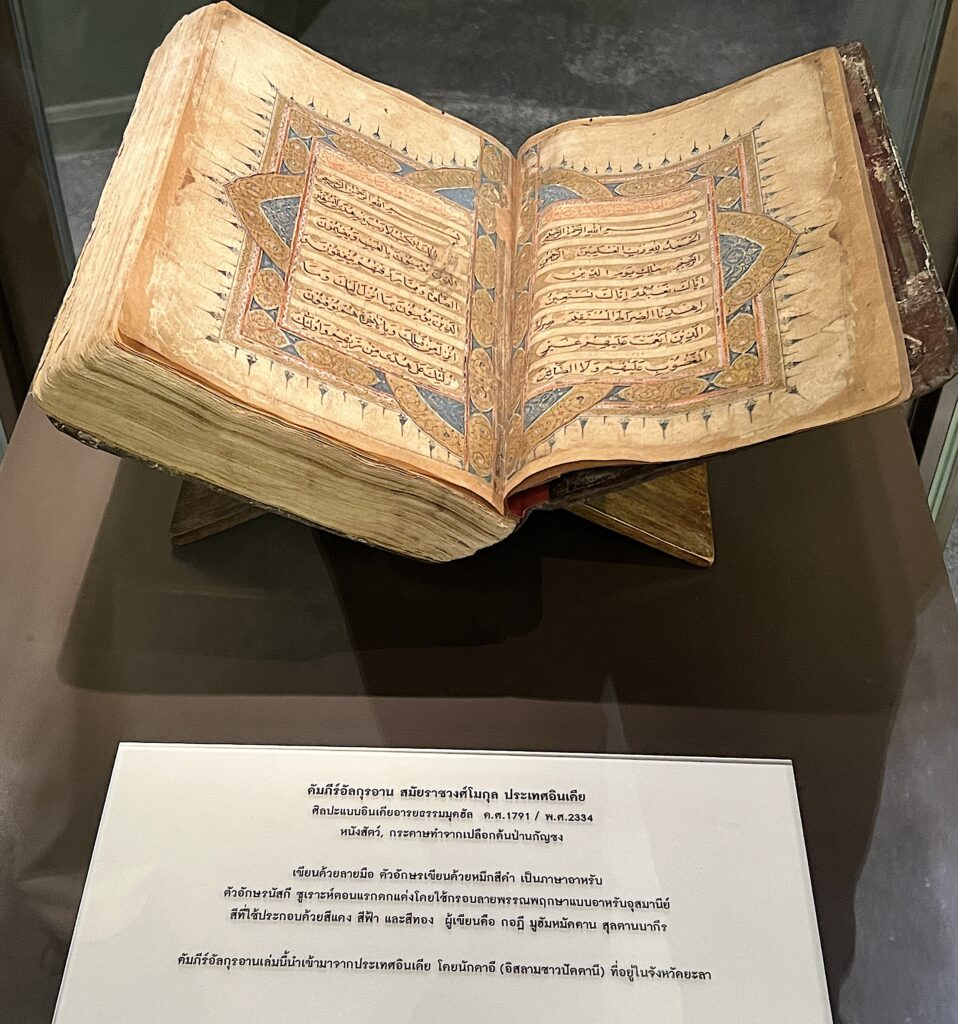 بسم الله الرحمن الرحيم
الحمد لله رب العالمين الرحمن
الرحيم مالك يوم الدين
اياك نعبد واياك نستعين
اهدنا الصراط المستقيم صراط
الذين انعمت عليهم غير
المغضوب عليهم ولا الضالين
بسم الله الرحمن الرحيم
الم ذلك الكتاب لا ريب فيه هدى للمتقين
الذين يؤمنون بالغيب ويقيمون
الصلوة ومما رزقنهم ينفقون و
الذين يؤمنون بما انزل اليك وما
انزل من قبلك وبالاخرة هم يوقنون
اولئك على هدى من ربهم واولئك
คัมภีร์อัลกุรอาน สมัยราชวงศ์โมกุล ประเทศอินเดีย
ศิลปะแบบอินเดียอารยธรรมมุคฮัล ค.ศ.1791 / พ.ศ.2334
หนังสัตว์, กระดาษทำจากเปลือกต้นป่านกัญชง
เขียนด้วยลายมือ ตัวอักษรเขียนด้วยหมึกสีดำ เป็นภาษาอาหรับ
ตัวอักษรนัสกี ซูเราะห์ตอนแรกตกแต่งโดยใช้กรอบลายพรรณพฤกษาแบบอาหรับอุสมานีย์
สีที่ใช้ประกอบด้วยสีแดง สีฟ้า และสีทอง ผู้เขียนคือ กอฎี มูฮัมหมัดดาน สุลตานบากีร
คัมภีร์อัลกุรอานเล่มนี้นำเข้ามาจากประเทศอินเดีย โดยนักดาอี (อิสลามชาวปัตตานี) ที่อยู่ในจังหวัดยะลา